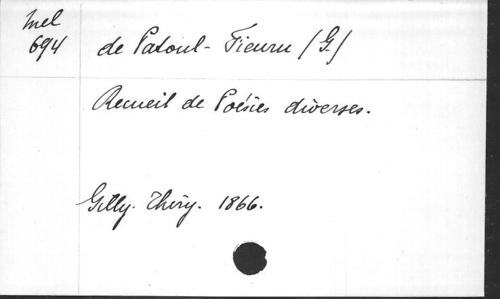 Mel
694
de Patoul-Fieuru (G.)
Recueil de Poésies diverses.
Gilly. Théry. 1866.